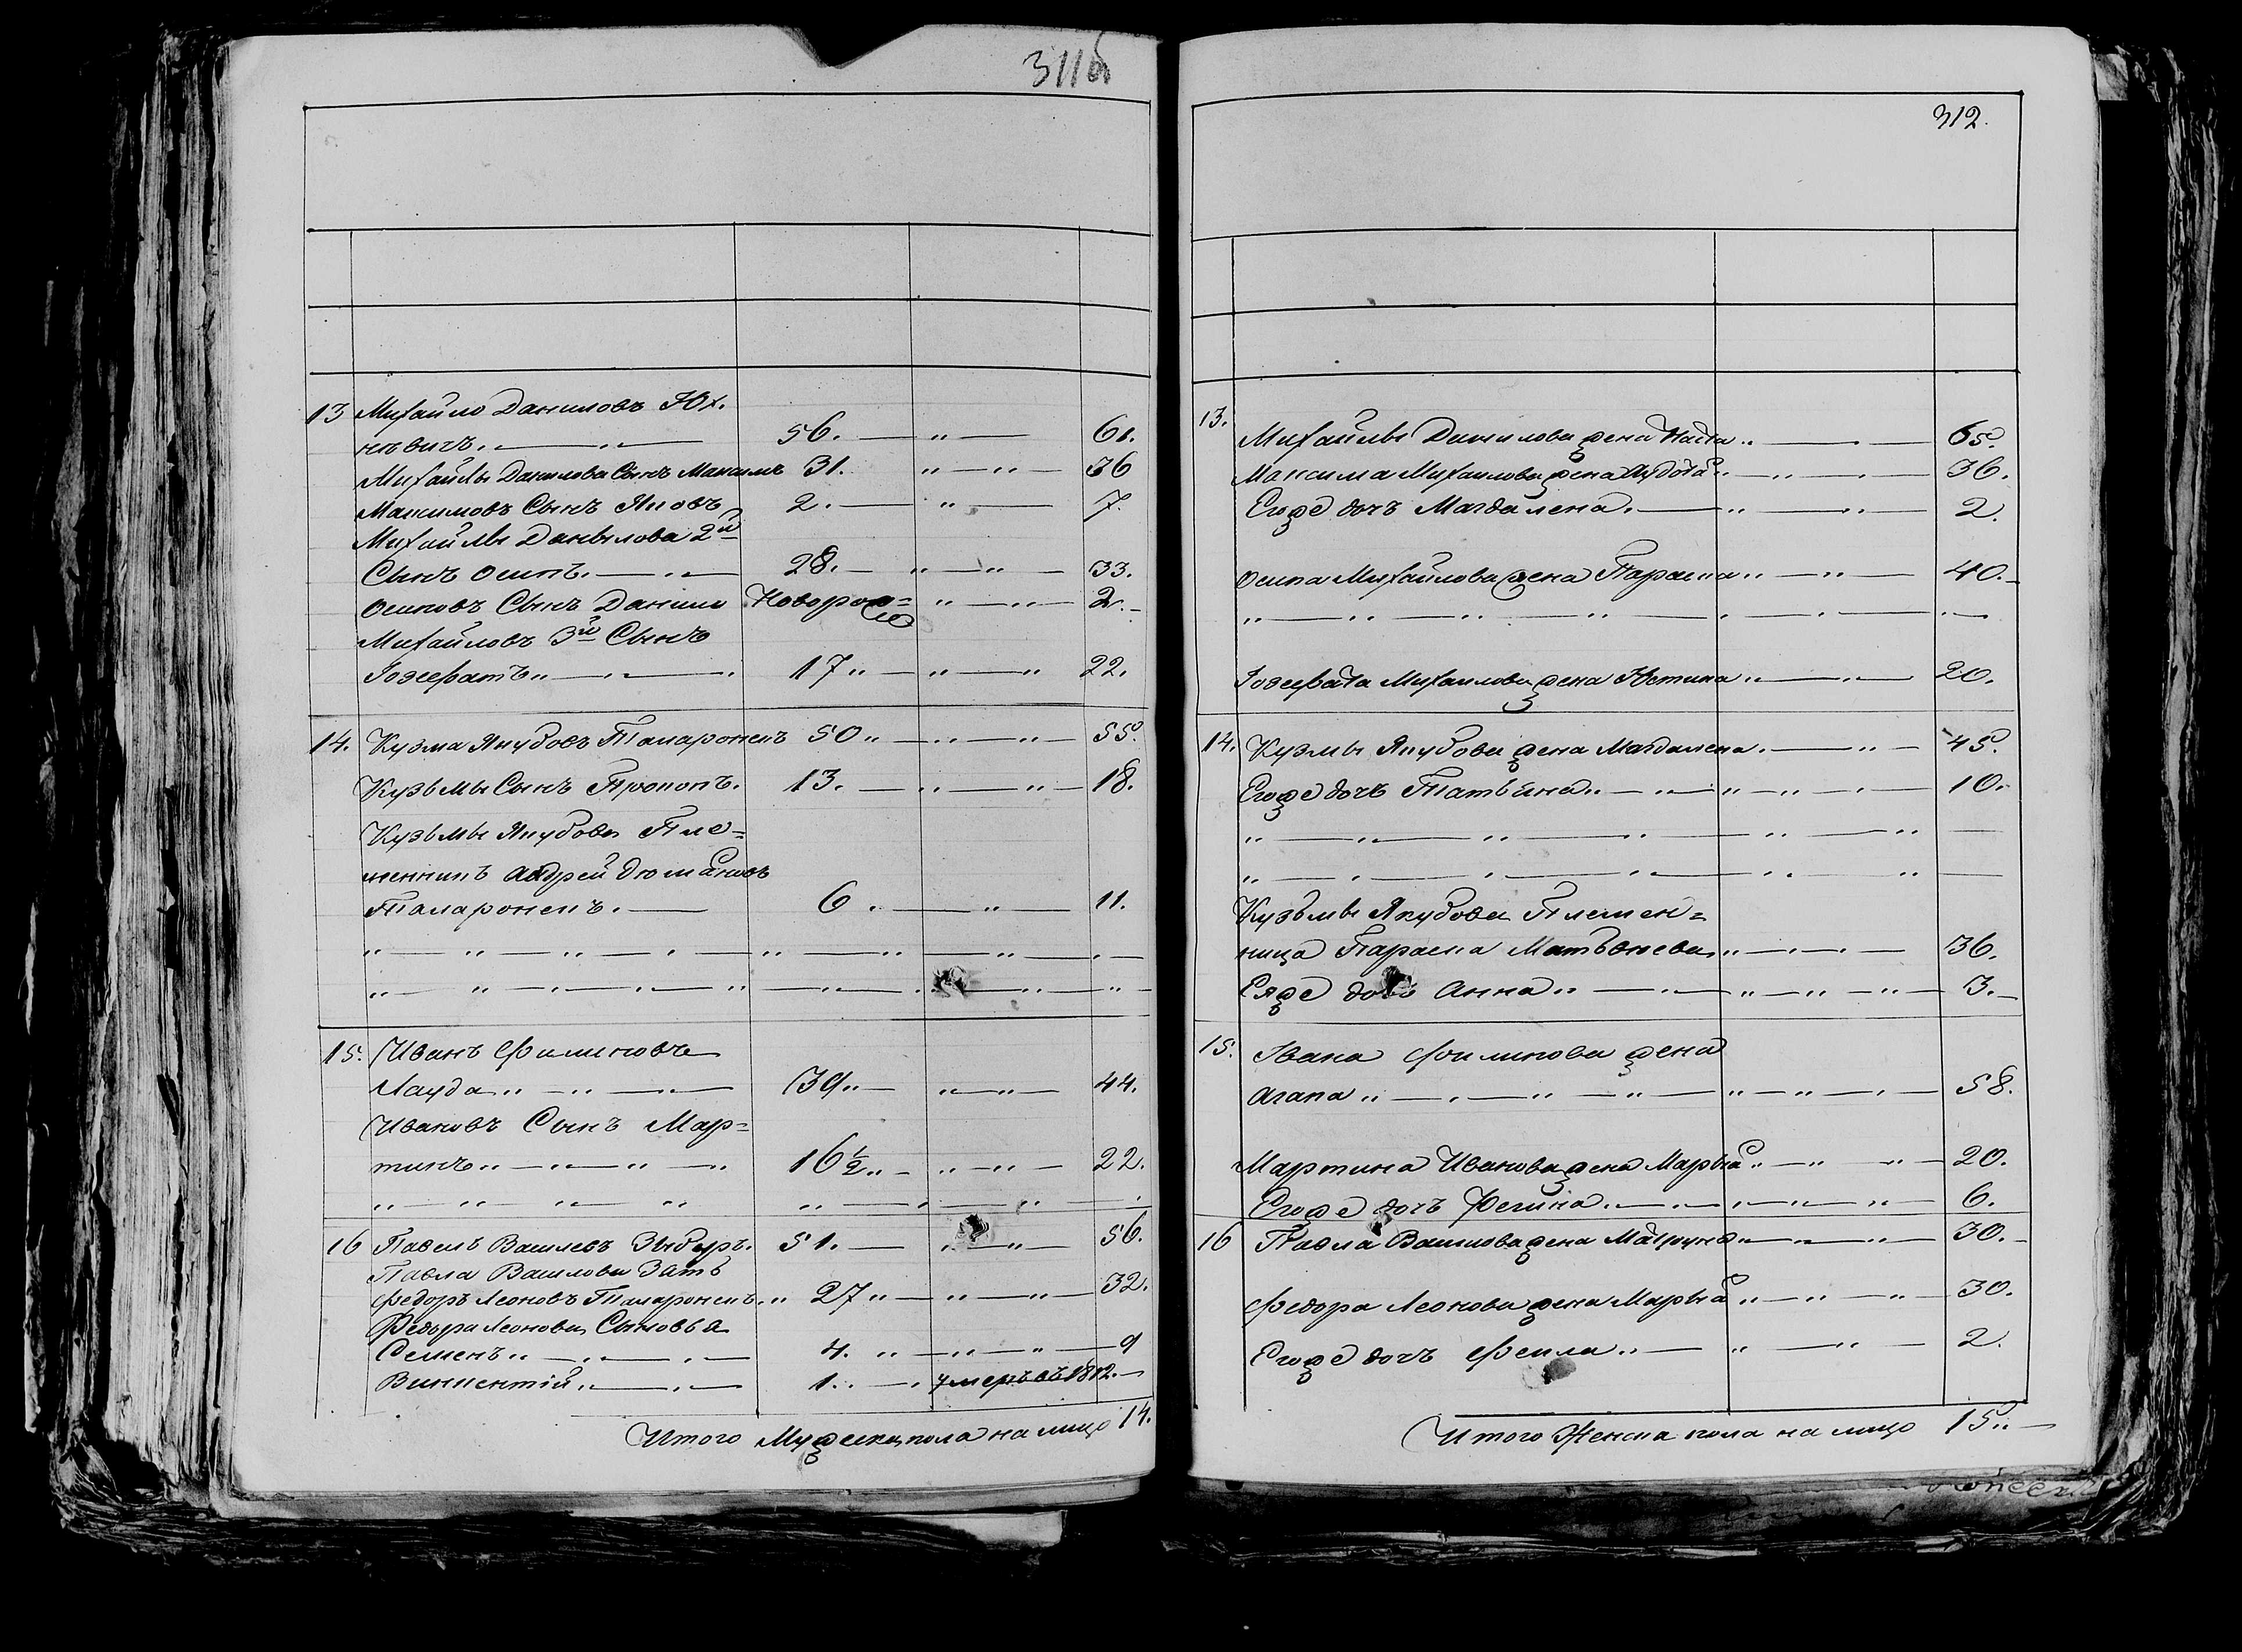 311об
13 Михайло Даниловъ Юх.
невичъ. 56. „ 61.
Михайлы Данилова Сынъ Максимъ 31. „ „ 36
Максимовъ Сынъ Яковъ 2. „ 7.
Михайлы Данилова 2й
Сынъ Осипъ. 28. „ „ 33.
Осиповъ Сынъ Данило Новорож= „ „ 2.
Михайловъ 3й Сынъ
Іозефатъ „ 17 „ „ „ 22.
14. Кузма Якубовъ 50 „ „ „ 55.
Кузьмы Сынъ Прокопъ. 13. „ „ 18.
Кузьмы Якубова Пле=
менникъ Андрей
6. „ 11.
15. Иванъ Филиповъ
Лауда „ „ 39 „ „ „ 44.
Ивановъ Сынъ Мар=
тинъ „ „ „ „ 16½ „ „ „ 22.
16 Павелъ Васильевъ 51. „ „ 56.
Павла Василова Зять
Федоръ Леоновъ 27 „ „ „ 32.
Федора Леонова Сыновья
Семенъ „ 4. „ „ „ 9
Викентій „ 1. умеръ въ 1812.
Итого Мужеска пола на лицо 14.
312.
13. Михайлы Данилова жена Наста „ 65.
Максима Михайлова жена Авдотя „ „ 36.
Егоже дочъ Магдалена. „ „ 2.
Осипа Михайлова жена Параска „ „ 40.
Іозефата Михайлова жена Юстина „ „ 20.
14. Кузмы Якубова жена Магдалена. „ 45.
Егоже дочъ Татьяна „ „ „ „ 10.
Кузьмы Якубова Племен=
ница Параска Матвеева „ 36.
Еяже дочь Анна „ „ „ „ „ 3.
15. Ивана Филипова жена
Агапа „ „ „ „ „ 58.
Мартина Иванова жена Марья „ „ „ 20.
Егоже дочъ „ „ „ „ 6.
16 Павла Василова жена Матруна „ „ „ 30.
Федора Леонова жена Марья „ „ „ 30.
Егоже дочъ Фекла „ „ „ 2.
Итого Женска пола на лицо 15.